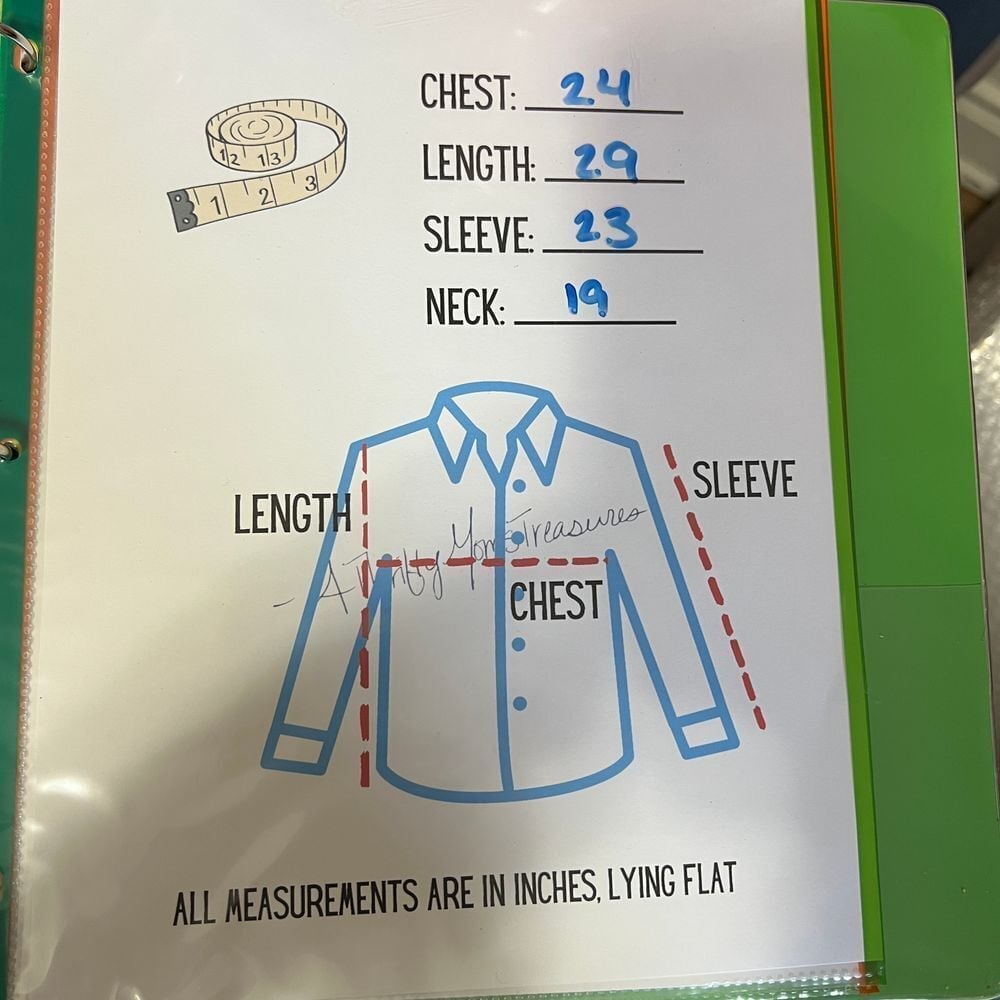 CHEST: 24
LENGTH: 29
12 13
1 2 3
SLEEVE: 23
NECK: 19
LENGTH
SLEEVE
- A Thrifty Moms Treasures
CHEST
ALL MEASUREMENTS ARE IN INCHES, LYING FLAT